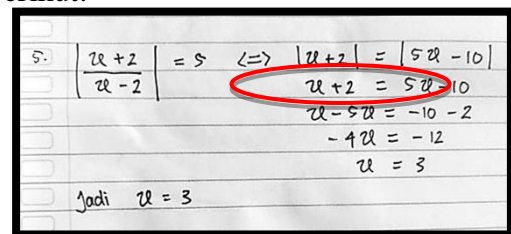 5. |x + 2 / x - 2| = 5 <=> |x + 2| = |5x - 10|
x + 2 = 5x - 10
x - 5x = -10 - 2
-4x = -12
x = 3
Jadi x = 3